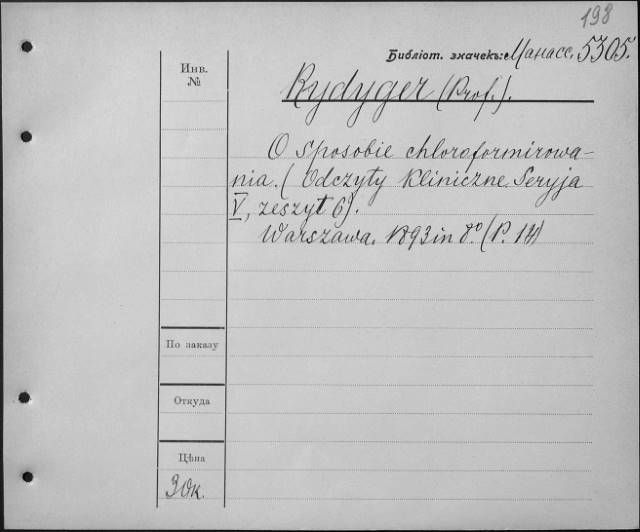 198
Библіот. значекъ: Манасс. 5305.
Инв.
№
Rydyger (Prof.).
O sposobie chloroformirowa-
nia. (Odczyty Kliniczne. Seryja
V, zeszyt 6).
Warszawa. 1893 in 8º. (P. 14)
По заказу
Откуда
Цѣна
30к.